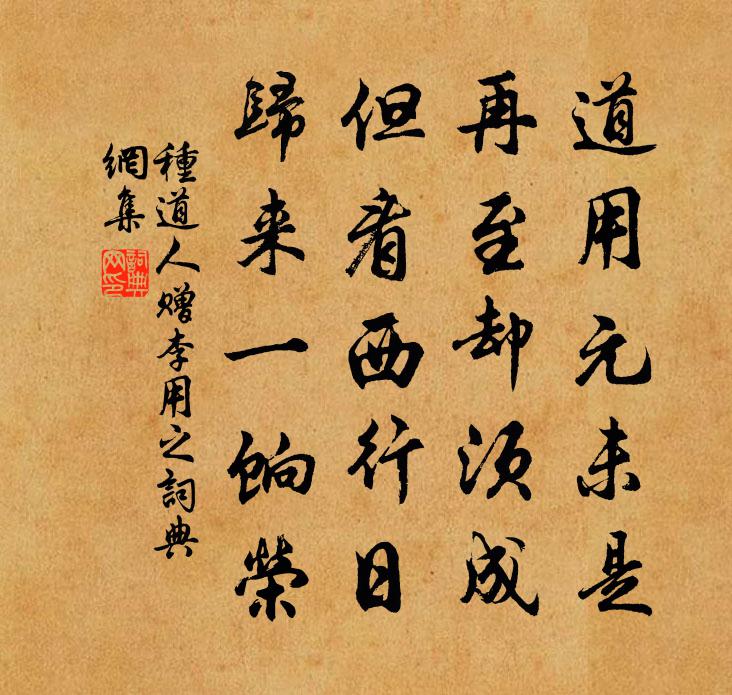 道用元未是
再至却須成
但看西行日
歸来一餉榮
種道人赠李用之詞典
網集
詞典
网印